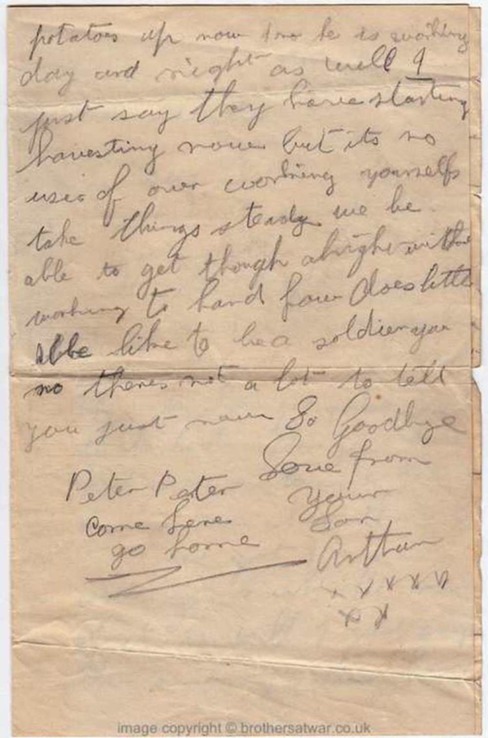 potatoes up now & he is working
day and night as well I
just say they have starting
harvesting now but its no
use of over working yourselfs
take things steady we be
able to get though alright with
working to hard how does little
like to be a soldier you
no theres not a lot to tell
you just now So Goodbye
Love from
Peter Peter your
come here Son
go home Arthur
x x x x x
x x
image copyright © brothersatwar.co.uk